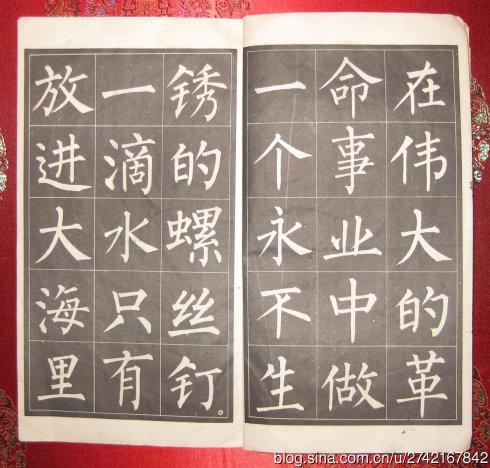 在伟大的革
命事业中做
一个永不生
锈的螺丝钉。
一滴水只有
放进大海里
blog.sina.com.cn/u/2742167842